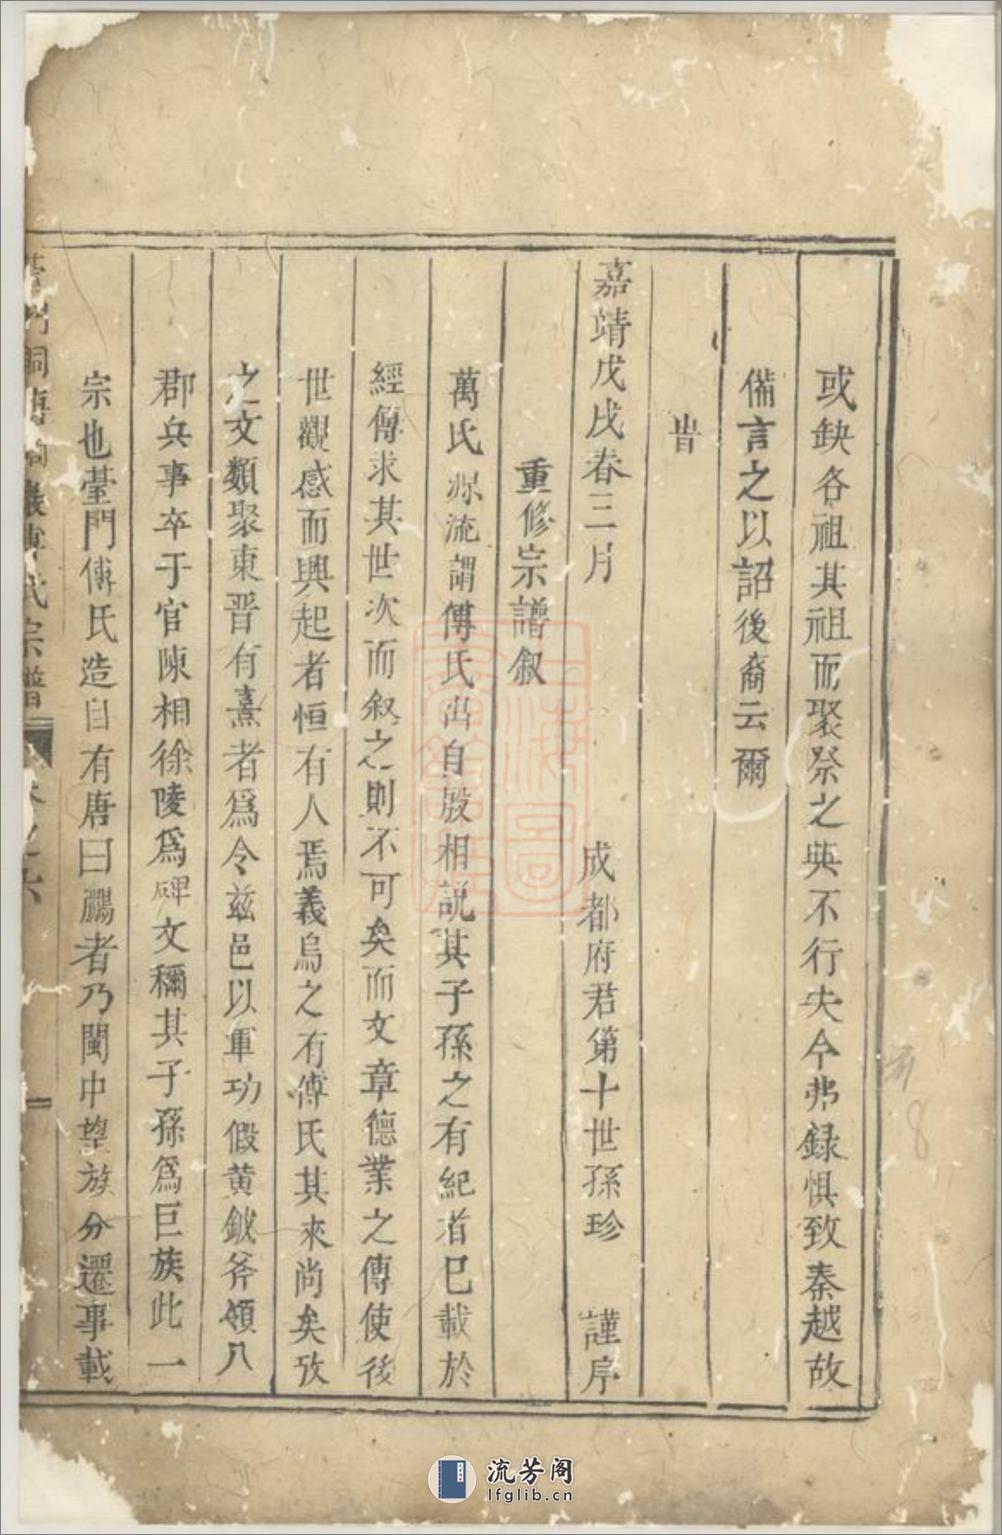 或缺各祖其祖而聚祭之典不行失今弗録惧致秦越故
備言之以詔後裔云爾
旹
嘉靖戊戌春三月 成都府君第十世孫珍 謹序
重修宗譜叙
萬氏源流謂傅氏出自殷相説其子孫之有紀者已載於
經傳求其世次而叙之則不可矣而文章德業之傳使後
世觀感而興起者恒有人焉義烏之有傅氏其來尚矣攷
之文類聚東晋有熹者爲令兹邑以軍功假黄鉞斧領八
郡兵事卒于官陳相徐陵爲碑文稱其子孫爲巨族此一
宗也䑓門傅氏造自有唐曰鷉者乃閩中望族分遷事載
門洞傅 巖傅氏宗譜
流芳阁
lfglib.cn
8